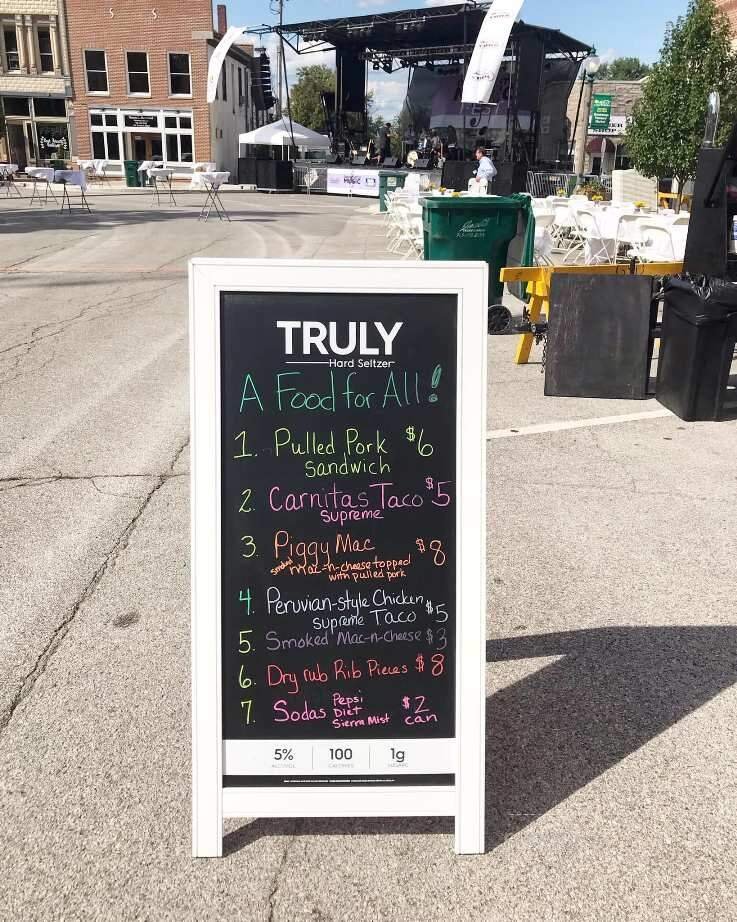 TRULY
Hard Seltzer
A Food for All!
1. Pulled Pork $6
sandwich
2. Carnitas Taco $5
supreme
3. Piggy Mac $8
smoked mac-n-cheese topped
with pulled pork
4. Peruvian-style Chicken $5
supreme Taco
5. Smoked Mac-n-Cheese $3
6. Dry rub Rib Pieces $8
7. Sodas Pepsi $2
Diet
Sierra Mist can
5% 100 1g
ALCOHOL CALORIES SUGARS